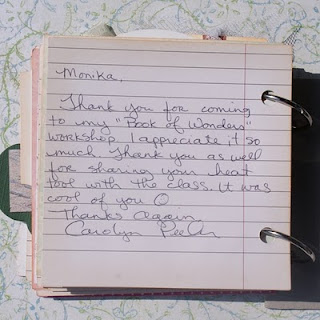 Monika,
Thank you for coming
to my "Book of Wonders"
workshop. I appreciate it so
much. Thank you as well
for sharing your heat
tool with the class. It was
cool of you
Thanks again
Carolyn